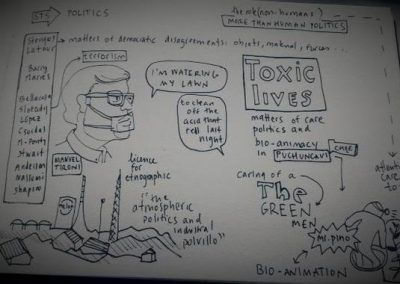 STS
POLITICS
the role (non-humans)
MORE THAN HUMAN POLITICS
Stengers
Latour
matters of democratic disagreements: objects, material, forces ...
Barry
Marres
terrorism
I'M WATERING
MY
LAWN
to clean
off the
acid that
fell last
night
TOXIC
lives
matters of care
politics and
bio-animacy
in PUCHUNCAVÍ
CHILE
Bellacasa
López
M-Ponty
Stewart
Anderson
Massumi
Shapiro
MANUEL
TIRONI
licence
for
ethnographic
"the
atmospheric
politics and
industrial
polvillo"
caring of a
The
GREEN
MEN
Mr. pino
BIO-ANIMATION
care
to